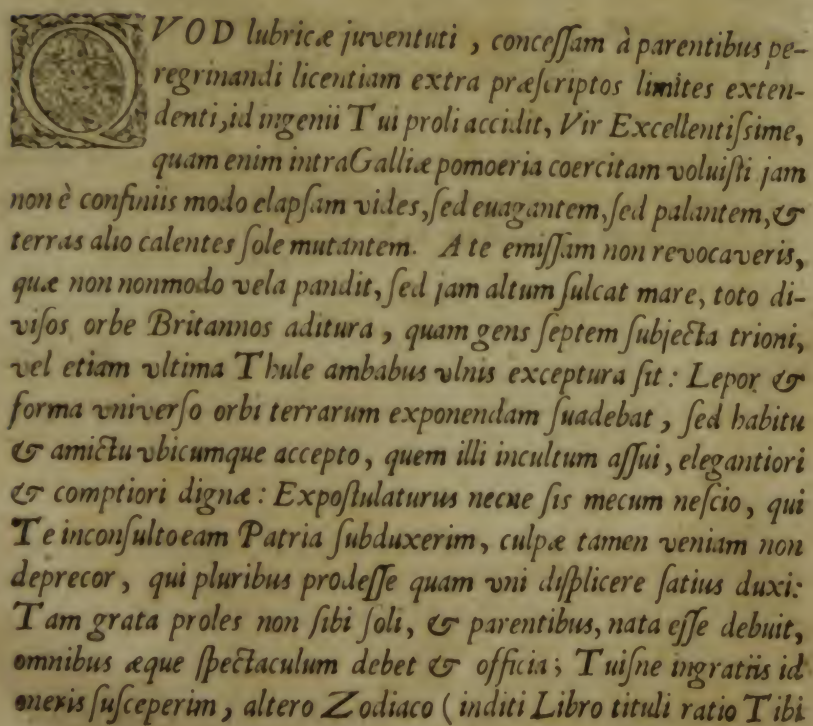 QVOD lubricæ juventuti , concessam à parentibus pe-
regrinandi licentiam extra præscriptos limites exten-
denti, id ingenii Tui proli accidit, Vir Excellentissime,
quam enim intra Galliæ pomoeria coercitam voluisti jam
non è confiniis modo elapsam vides, sed euagantem, sed palantem, &
terras alio calentes sole mutantem. A te emissam non revocaveris,
quæ non nonmodo vela pandit, sed jam altum sulcat mare, toto di-
visos orbe Britannos aditura , quam gens septem subjecta trioni,
vel etiam vltima Thule ambabus vlnis exceptura sit : Lepor &
forma vniverso orbi terrarum exponendam suadebat , sed habitu
& amictu vbicumque accepto , quem illi incultum assui , elegantiori
& comptiori dignæ : Expostulaturus necne sis mecum nescio , qui
Te inconsulto eam Patria subduxerim , culpæ tamen veniam non
deprecor , qui pluribus prodesse quam vni displicere satius duxi:
Tam grata proles non sibi soli, & parentibus, nata esse debuit,
omnibus æque spectaculum debet & officia ; Tuisne ingratiis id
oneris susceperim , altero Zodiaco ( inditi Libro tituli ratio Tibi